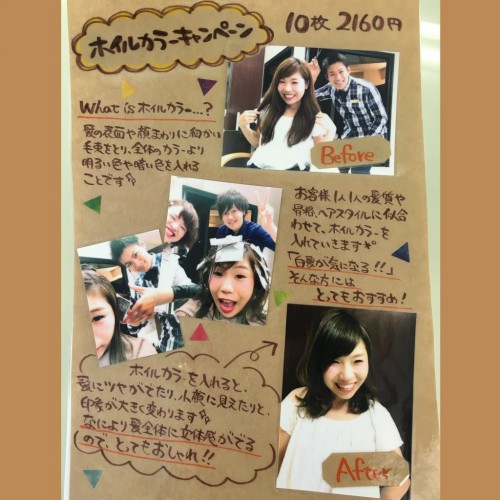 ホイルカラーキャンペーン
10枚 2160円
What is ホイルカラー…?
髪の表面や顔まわりに細かい
毛束をとり、全体のカラーより
明るい色や暗い色を入れる
ことです
Before
お客様1人1人の髪質や
骨格、ヘアスタイルに似合
わせて、ホイルカラーを
入れていきます
「白髪が気になる!!」
そんな方には
とってもおすすめ!
ホイルカラーを入れると、
髪にツヤがでたり、小顔に見えたりと、
印象が大きく変わります
なにより髪全体に立体感がでる
ので、とってもおしゃれ!!
After